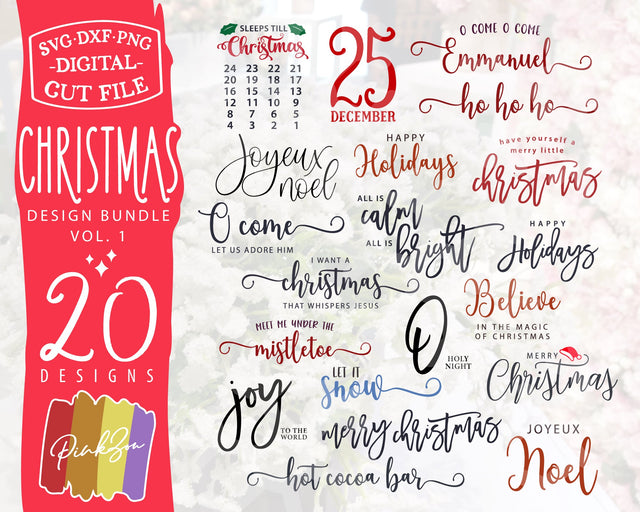 SVG·DXF·PNG
-DIGITAL-
CUT FILE
CHRISTMAS
DESIGN BUNDLE
VOL. 1
20
DESIGNS
PinkZou
SLEEPS TILL
Christmas
24 23 22 21
20 19 18 17
16 15 14 13
12 11 10 9
8 7 6 5
4 3 2 1
25
DECEMBER
O COME O COME
Emmanuel
ho ho ho
Joyeux
noel
HAPPY
Holidays
have yourself a
merry little
christmas
O come
LET US ADORE HIM
ALL IS
calm
ALL IS
bright
HAPPY
Holidays
I WANT A
christmas
THAT WHISPERS JESUS
Believe
IN THE MAGIC
OF CHRISTMAS
MEET ME UNDER THE
mistletoe
O
HOLY
NIGHT
MERRY
Christmas
joy
TO THE
WORLD
LET IT
Snow
merry christmas
JOYEUX
Noel
hot cocoa bar